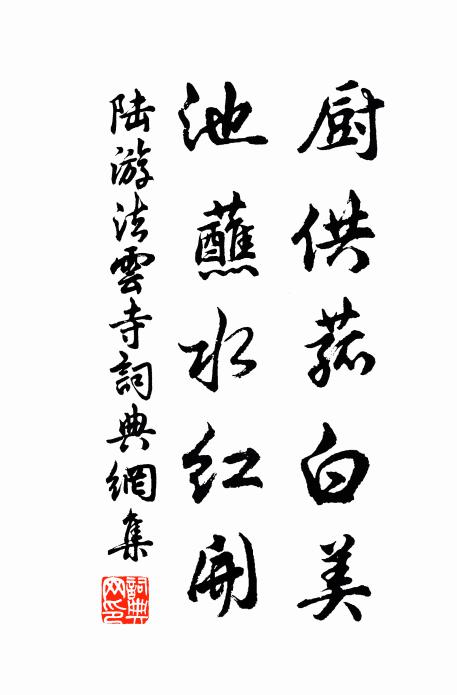 厨供菰白美
池蘸水红開
陆游法雲寺詞典網集
詞典網印